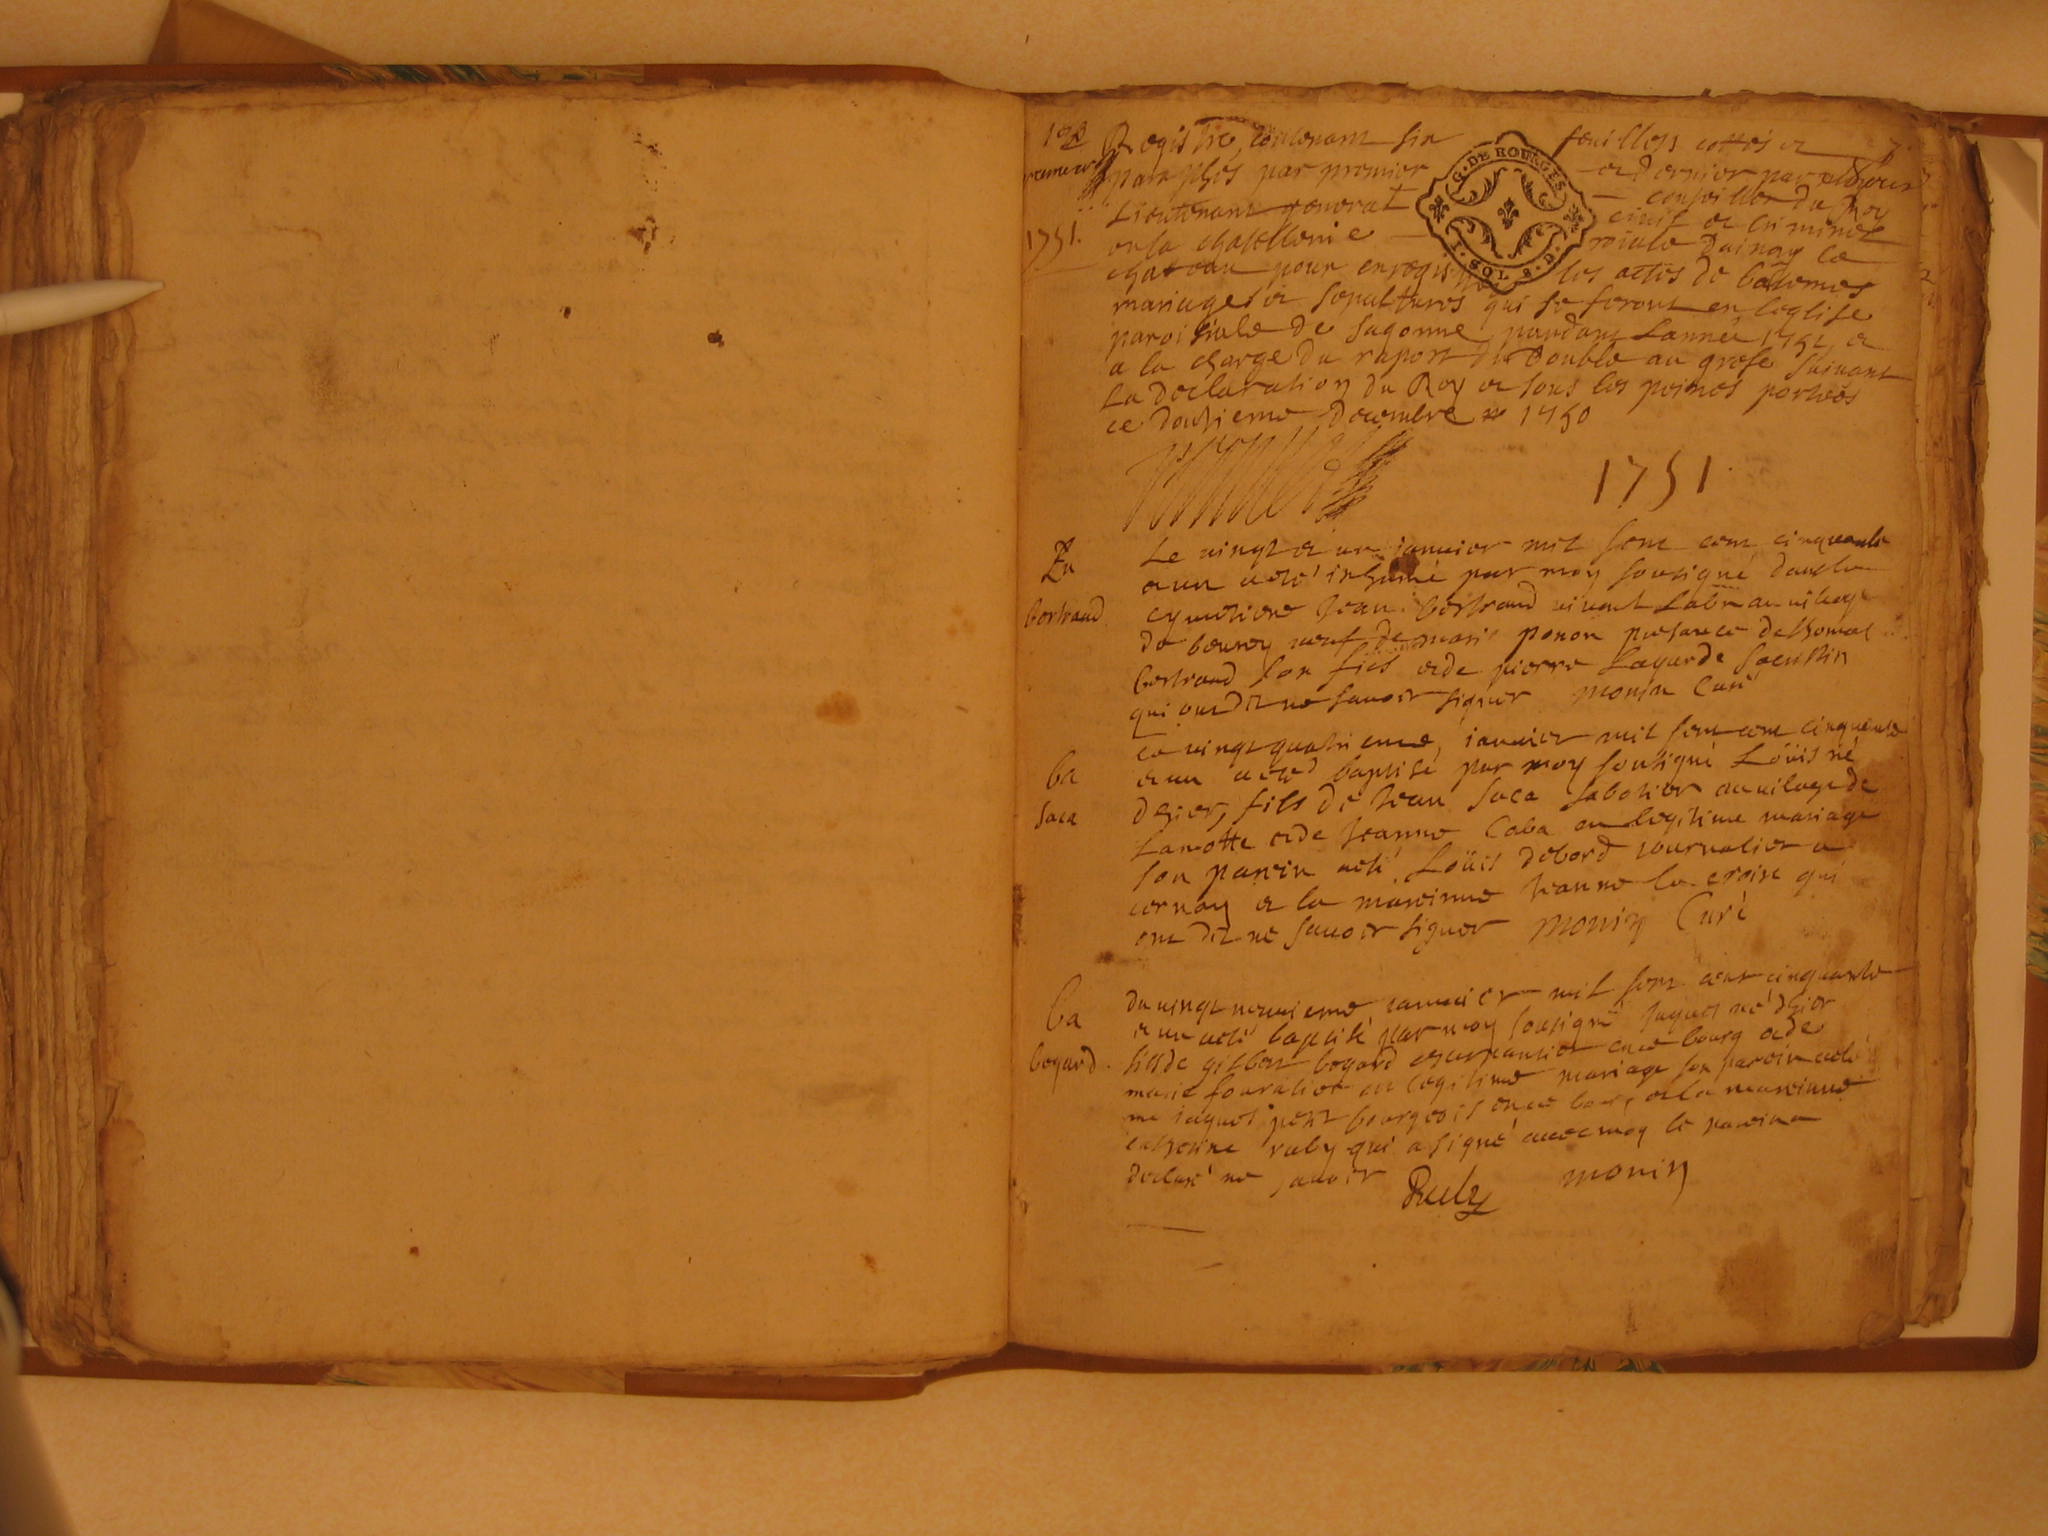 Registre, contenant six feuillets cottés et
premier paraphés par premier et dernier par
Lieutenant general conseiller du Roy
1751. civil et criminel
en la chastellenie roiale dainay le
chateau pour enregistrer les actes de batemes
mariages et sepultures qui se feront en leglise
paroissiale de Sagonne pendant Lannée 1751, et
a la charge du raport du double au grefe suivant
La declaration du Roy et sous les peines portées
ce douzieme decembre 1750
G. DE BOURGES
I. SOL 8. D.
1751.
En Le vingt et un janvier mil sept cent cinquante
et un a eté inhumé par moy sousigné dans le
bertrand cymetiere Jean bertrand vivant Labr au vilage
de veuf de marie ponon presance de thomas
bertrand son fils et de pierre Lagarde sacristin
qui ont dit ne savoir signer monin Curé
Le vingt quatrieme janvier mil sept cent cinquante
ba et un a eté baptisé par moy sousigné Loüis né
saca dhier, fils de Jean saca sabotier au vilage de
Lamotte et de Jeanne Caba en legitime mariage
son parein a eté Loüis debord journalier a
cornay et la mareinne Jeanne la croix qui
ont dit ne savoir signer monin Curé
ba du vingt neuvieme janvier mil sept cent cinquante
et un a eté baptisé par moy sousigné Jaques né dhier
bogard. fils de gilbert bogard charpantier en ce bourg et de
marie en legitime mariage son parein a eté
me jaques petit bourgeois en ce bourg et la mareinne
catherine ruby qui a signé avec moy le parein a
declaré ne savoir Ruby monin